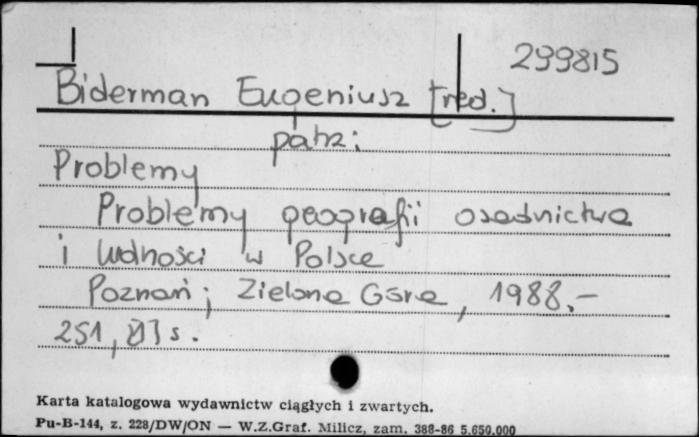 299815
Biderman Eugeniusz [red.]
patrz:
Problemy
Problemy geografii osadnictwa
i ludności w Polsce
Poznań; Zielona Góra, 1988.-
251, s.
Karta katalogowa wydawnictw ciągłych i zwartych.
Pu-B-144, z. 228/DW/ON — W.Z.Graf. Milicz, zam. 388-86 5.650.000